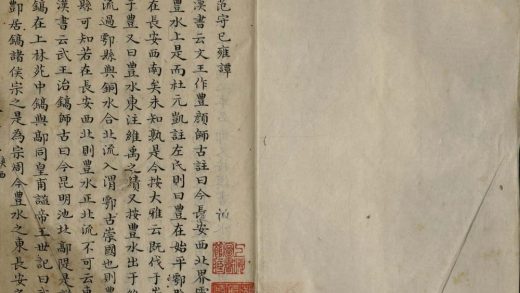 范守己雍譚
漢書云文王作豐顏師古註曰今長安西北界靈
豐水上是而杜元凱註左氏則曰豐在始平鄠縣
在長安西南矣未知孰是今按大雅云既伐于崇
于豐又曰豐水東注維禹之績又按豐水出于終
流過鄠縣與鎬水合北流入渭鄠古崇國也則豐
縣可知若在長安西北則豐水正北流不可云東
漢書云武王治鎬師古曰今昆明池北鎬陂是
鎬在上林苑中鎬與鄗同皇甫謐帝王世記曰武
鄷居鎬諸侯宗之是為宗周今豐水之東長安之